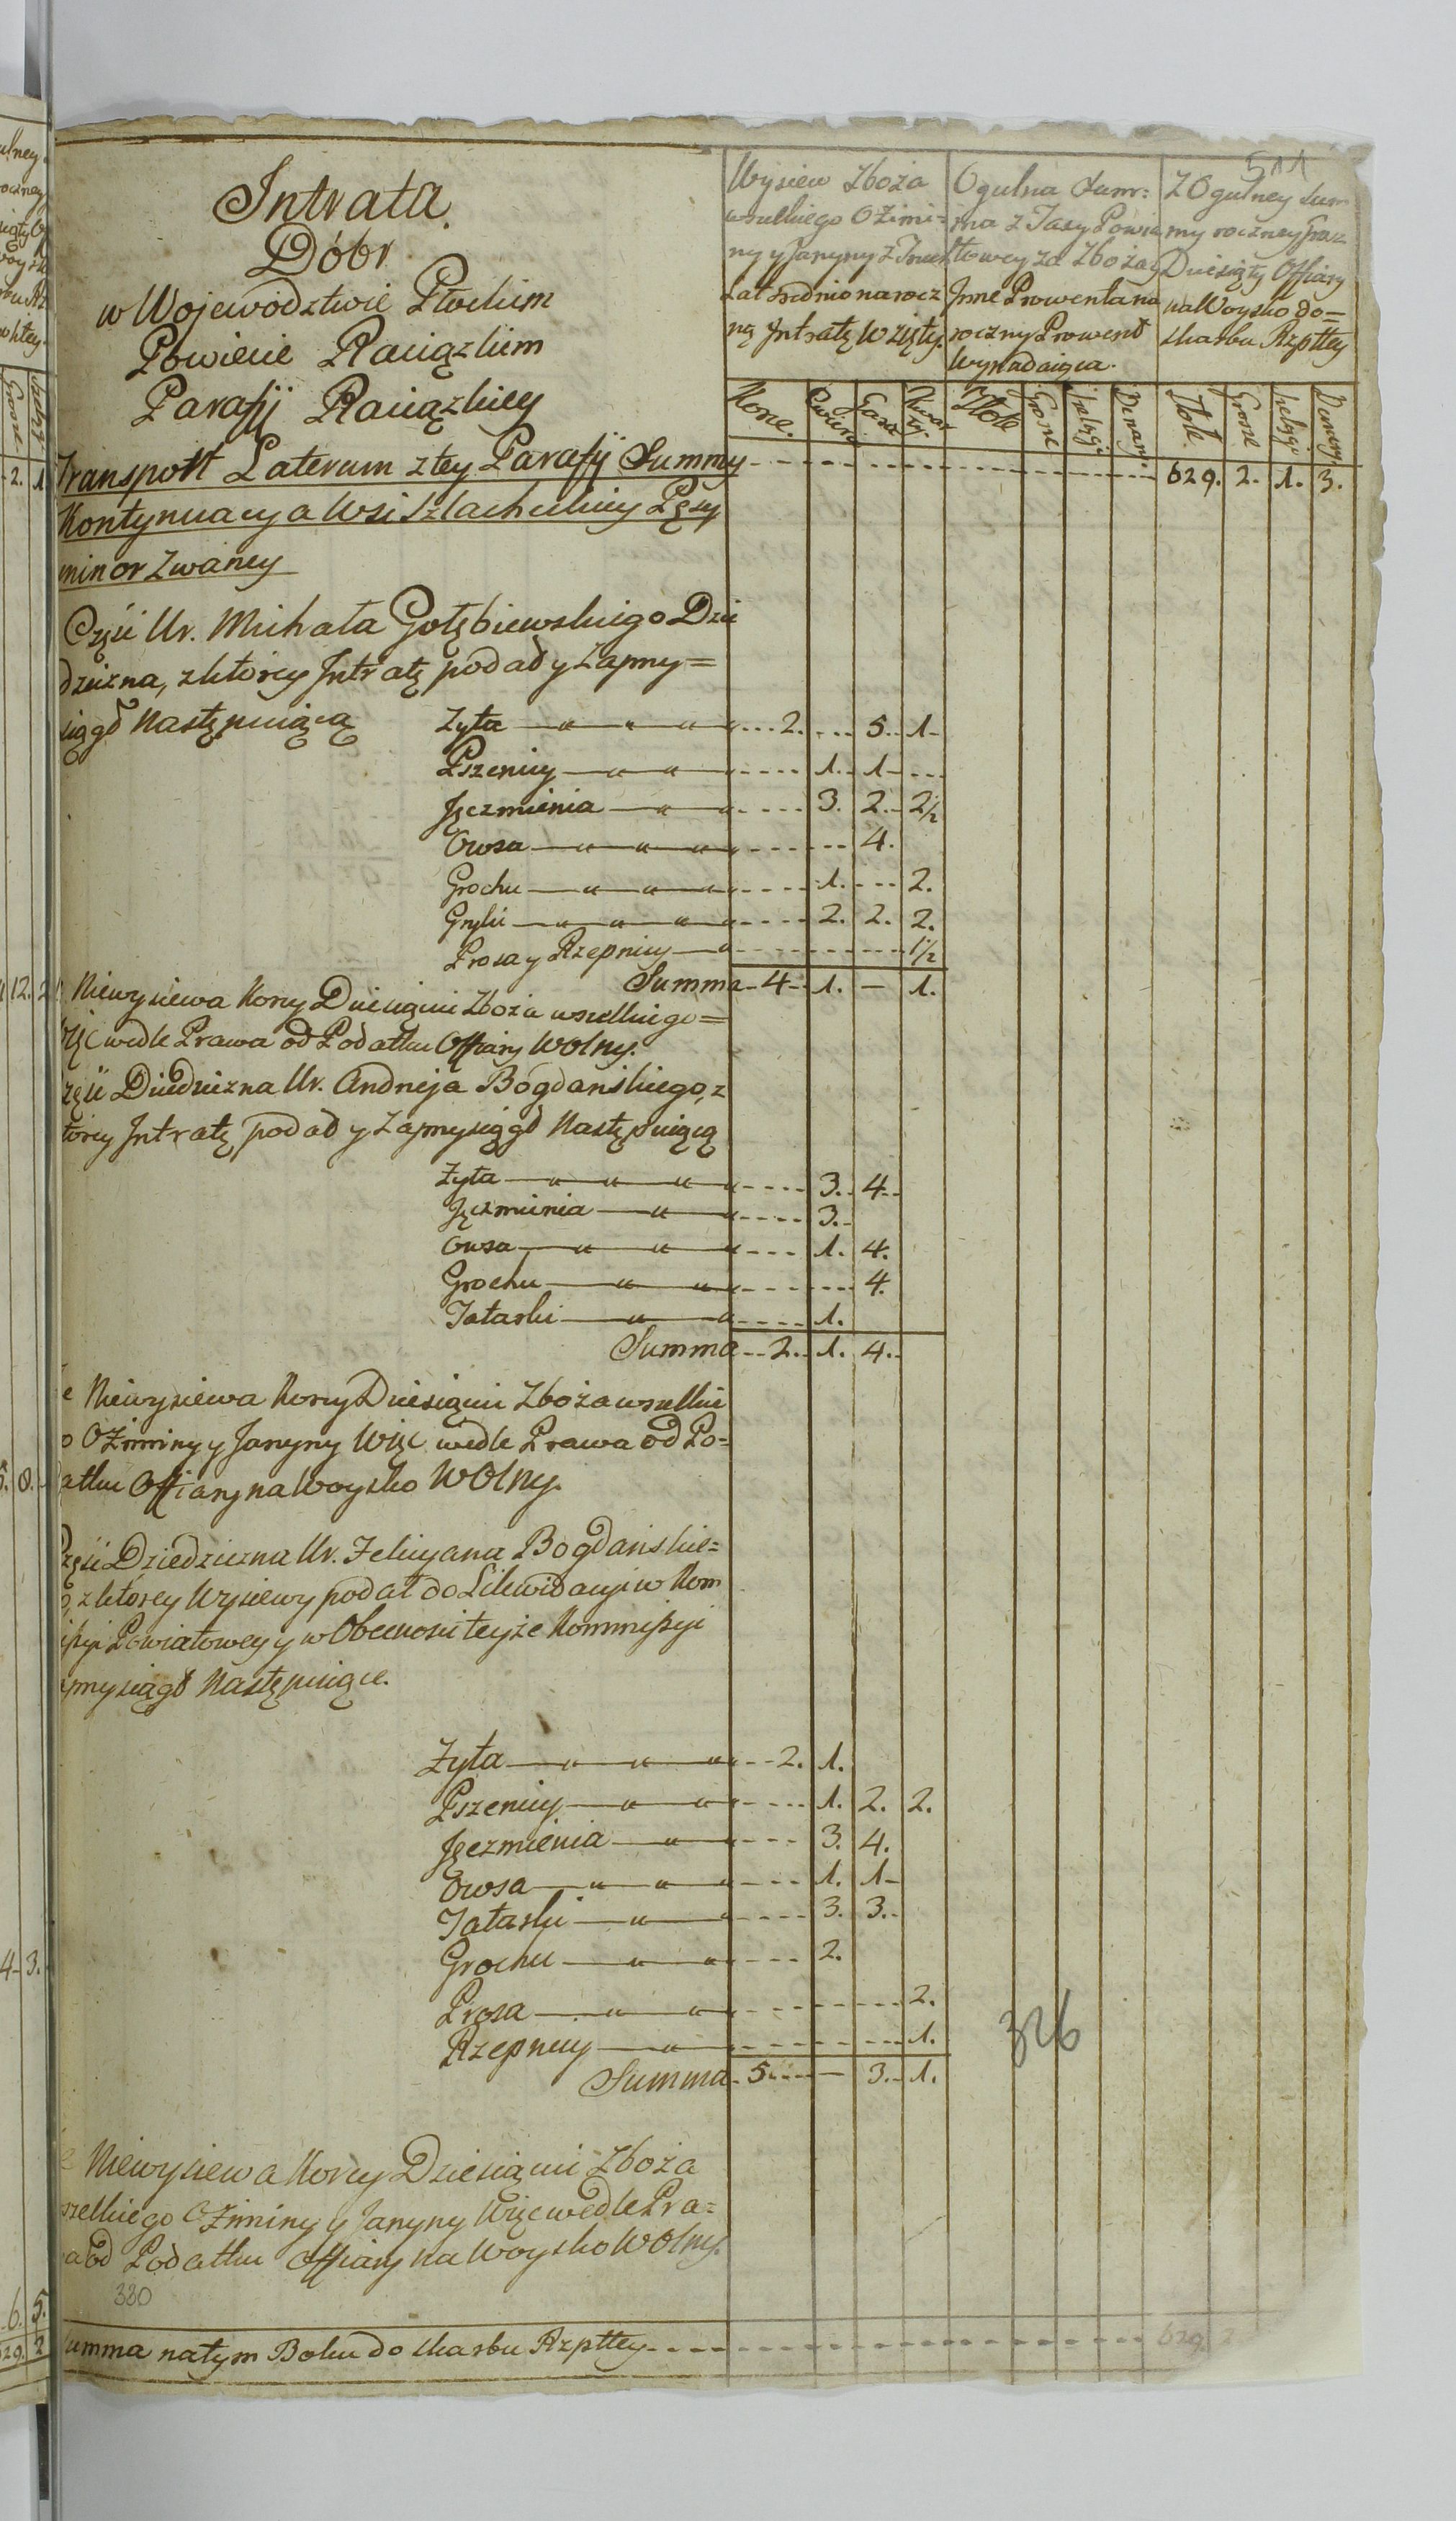 511
Intrata
Dóbr
w Wojewodztwie Płockim
Powiecie Raciązkim
Parafij Raciązkiey
Wysiew Zboża
wszelkiego Ozimi=
ny y Jaryny z Trzech
Lat srednio na rocz
ną Jntratę Wzięty.
Ogulna Sum:
ma z Taxy Powia
towey za Zboża y
Jnne Prowenta na
roczny Prowent
Wypadaiąca.
Z Ogulney Sum
my roczney przez
Dziesiąty Offiary
na Woysko do=
Skarbu Rzptey
Korce. Cwierci Garce Kwar Złote Grosze Szelągi Denary Złote. Grosze Szelągi Denary
Transport Laterum z tey Parafij Summy 629. 2. 1. 3.
Kontynuacya Wsi Szlacheckiey Pęsy
minor Zwaney
Częśi Ur. Michała Gołębiewskiego Dzie
dziczna, z ktorey Jntratę podał y Zaprzy=
siągł Następuiącą
Zyta 2. 5. 1
Pszenicy 1. 1
Jęczmienia 3. 2. 2½
Owsa 4.
Grochu 1. 2.
Gryki 2. 2. 2.
Prosa y Rzepnicy 1½
Summa 4 1. — 1.
Niewysiewa Korcy Dziesiąciu Zboża wszelkiego=
więc wedle Prawa od Podatku Offiary Wolny.
częśi Dziedziczna Ur. Andrzeja Bogdańskiego, z
torey Jntratę podał y Zaprzysiągł Następuiącą
Zyta 3. 4
Jęczmienia 3.
Owsa 1. 4.
Grochu 4.
Tatarki 1.
Summa 2. 1. 4.
e Niewysiewa Korcy Dziesiąciu Zboża wszelkie
o Ozimmy y Jaryny Więc wedle Prawa od Po=
atku Offiary na Woysko Wolny.
Częśi Dziedziczna Ur. Felicyana Bogdańskie=
o, z ktorey Wysiewy podał do Likwidacyi w Kom
ißyi Powiatowey y w Obecnosci teyże Kommißyi
aprzysiągł Następuiące.
Zyta 2. 1.
Pszenicy 1. 2. 2.
Jęczmienia 3. 4.
Owsa 1. 1
Tatarki 3. 3.
Grochu 2.
Prosa 2.
Rzepnicy 1.
Summa 5 — 3. 1.
326
e Niewysiewa Korcy Dziesiąciu Zboża
szelkiego Ozimmy y Jaryny Więc wedle Pra=
a od Podatku Offiary na Woysko Wolny.
330
umma na tym Boku do Skarbu Rzptey 629. 2